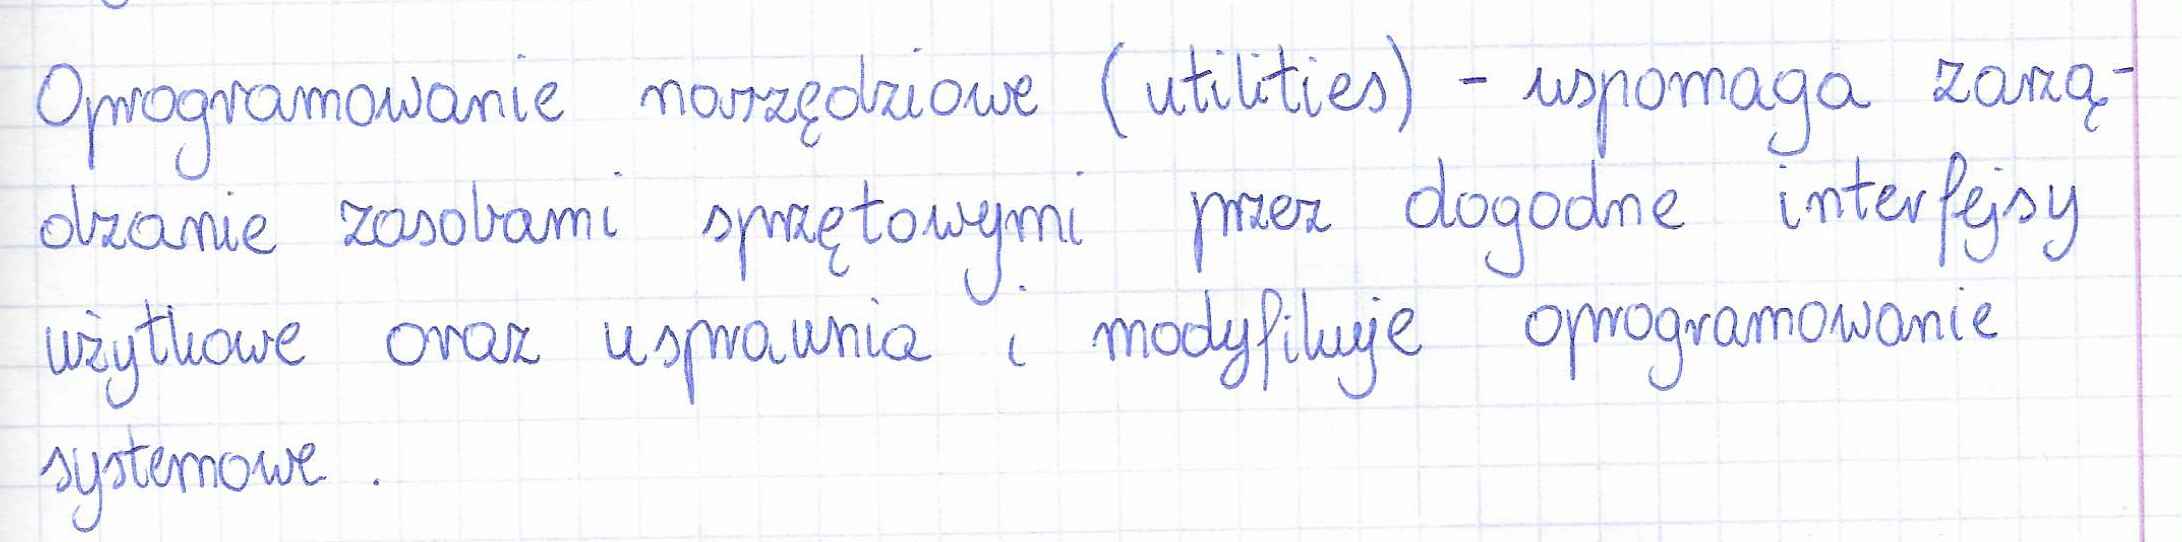 Oprogramowanie narzędziowe (utilities) - wspomaga zarzą-
dzanie zasobami sprzętowymi przez dogodne interfejsy
użytkowe oraz usprawnia i modyfikuje oprogramowanie
systemowe.